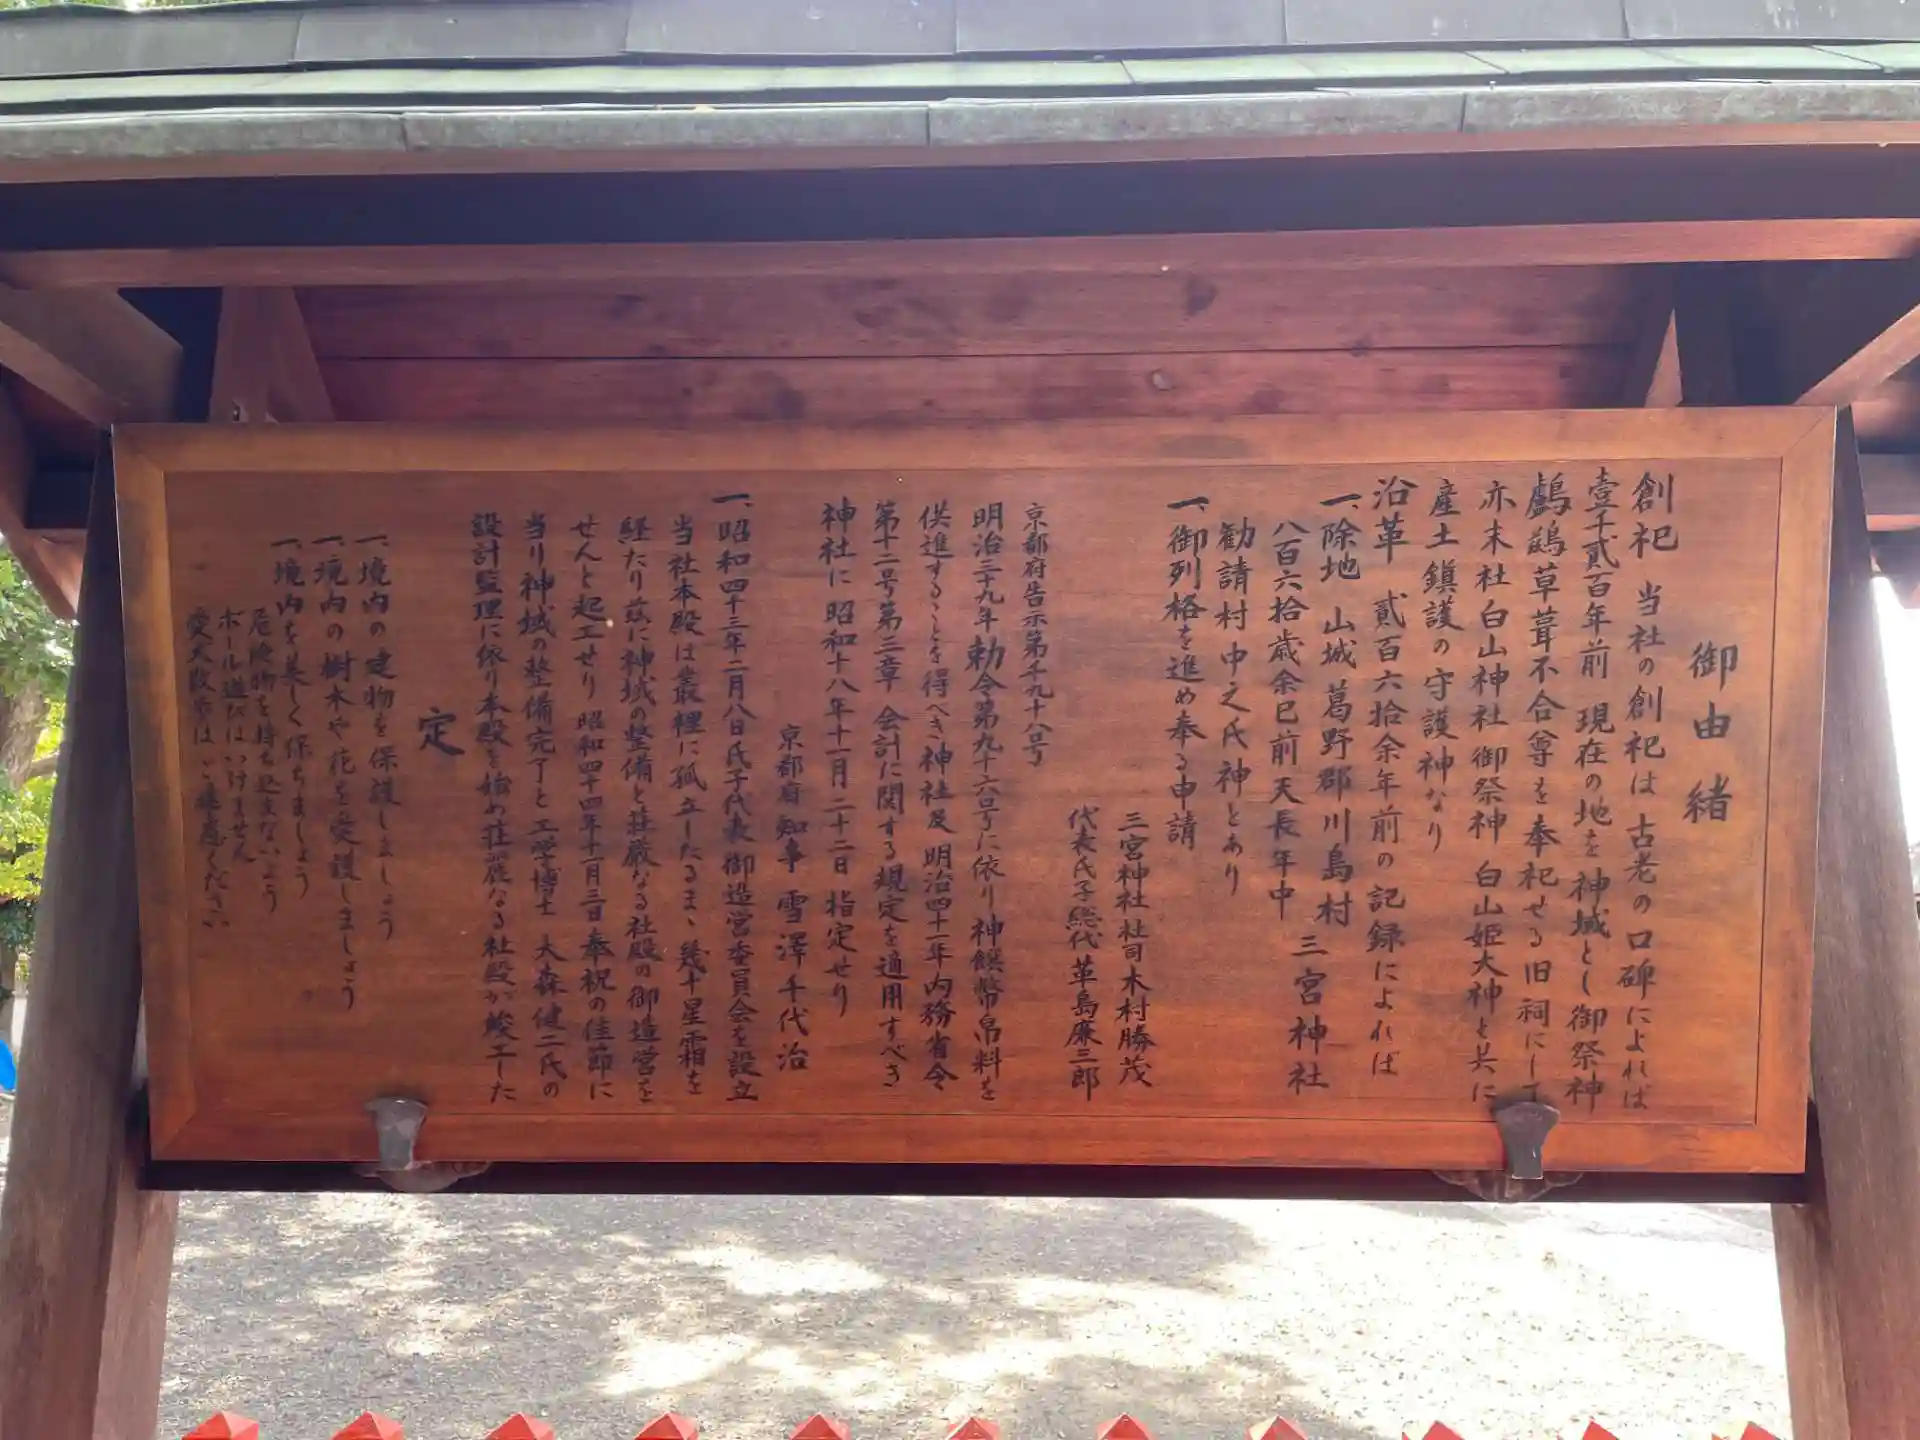 御由緒
創祀 当社の創祀は古老の口碑によれば
壹千貳百年前 現在の地を神域とし御祭神
鸕鷀草葺不合尊を奉祀せる旧祠にして
亦末社白山神社 御祭神 白山姫大神と共に
産土鎮護の守護神なり
沿革 貳百六拾余年前の記録によれば
一、除地 山城葛野郡川島村 三宮神社
八百六拾歳余巳前 天長年中
勧請村中之氏神とあり
一、御列格を進め奉る申請
三宮神社 社司 木村勝茂
代表氏子総代 革島廉三郎
京都府告示第千九十八号
明治三十九年勅令第九十六号に依り神饌幣帛料を
供進することを得べき神社及明治四十一年内務省令
第十二号第三章 会計に関する規定を適用すべき
神社に昭和十八年十一月二十二日指定せり
京都府知事 雪澤千代治
一、昭和四十三年二月八日氏子代表御造営委員会を設立
当社本殿は叢裡に孤立したるまゝ幾十星霜を
経たり茲に神域の整備と荘厳なる社殿の御造営を
せんと起工せり 昭和四十四年十一月三日奉祝の佳節に
当り神域の整備完了と工学博士 大森健二氏の
設計監理に依り本殿を始め荘麗なる社殿が竣工した
定
一、境内の建物を保護しましょう
一、境内の樹木や花を愛護しましょう
一、境内を美しく保ちましょう
危険物を持ち込まないよう
ボール遊びはいけません
愛犬散歩はご遠慮ください